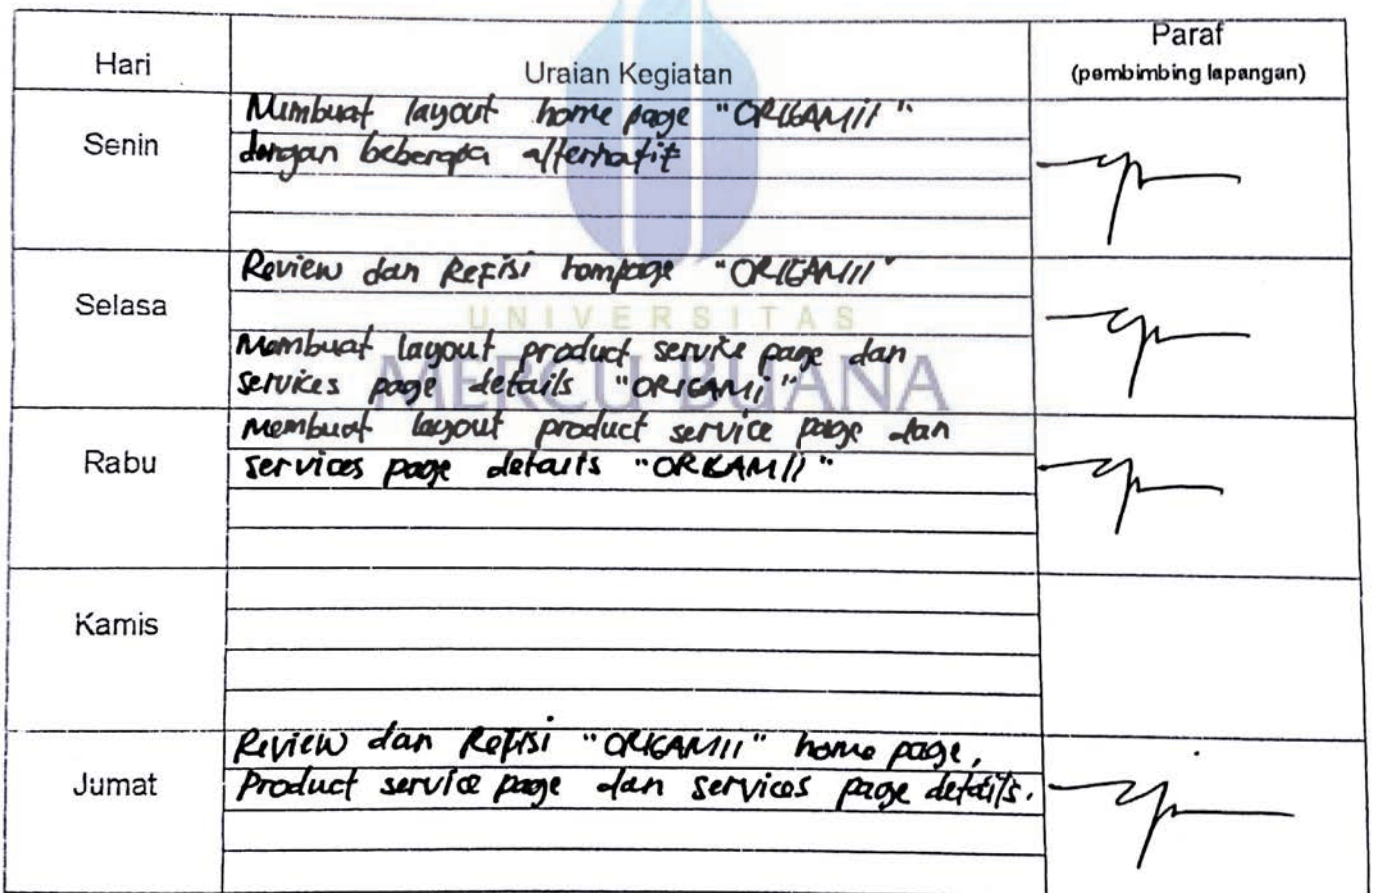 Hari
Uraian Kegiatan
Paraf
(pembimbing lapangan)
Senin
Membuat layout home page "ORIGAMII"
dengan beberapa alternatif
Selasa
Review dan Refisi hompage "ORIGAMII"
UNIVERSITAS
Membuat layout product service page dan
services page details "ORIGAMI"
MERCU BUANA
Rabu
Membuat layout product service page dan
services page details "ORIGAMII"
Kamis
Jumat
Review dan Refisi "ORIGAMII" home page,
Product service page dan services page details.